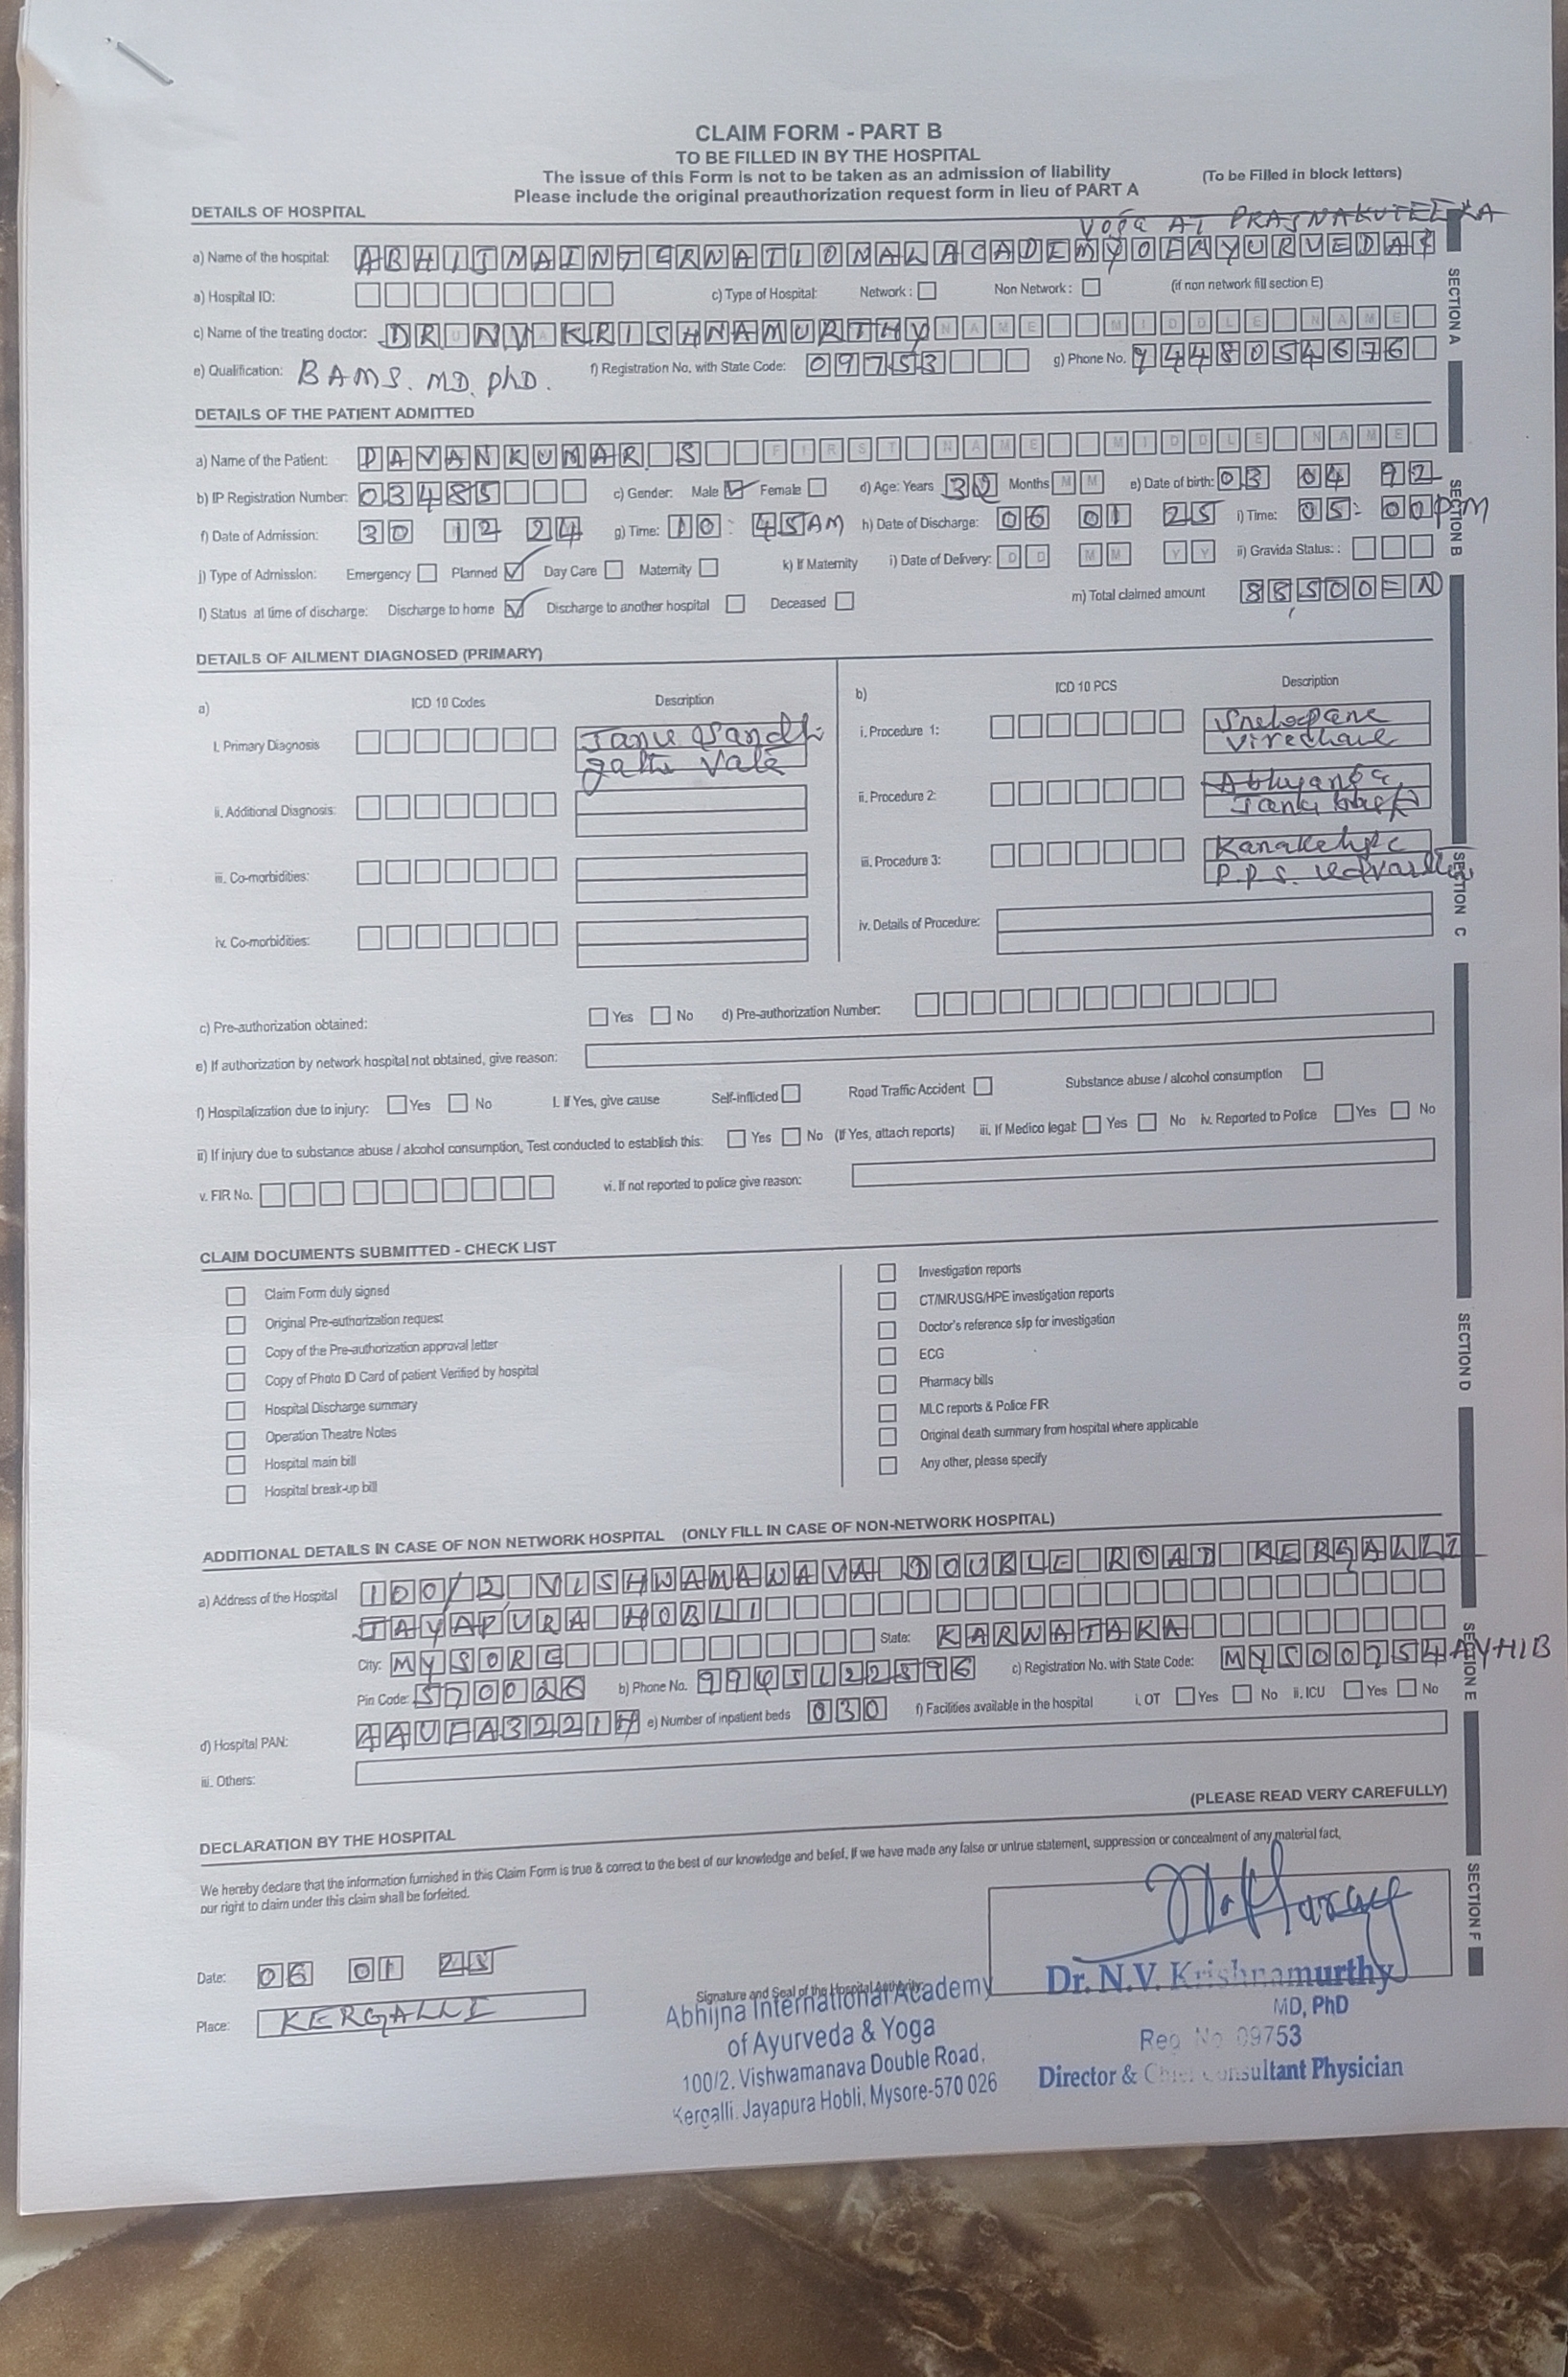 CLAIM FORM - PART B
TO BE FILLED IN BY THE HOSPITAL
The issue of this Form is not to be taken as an admission of liability (To be Filled in block letters)
Please include the original preauthorization request form in lieu of PART A
DETAILS OF HOSPITAL
YOGA AT PRAJNAKUTEEKA
a) Name of the hospital: ABHIJNAINTERNATIONALACADEMYOFAYURVEDA&
a) Hospital ID: c) Type of Hospital: Network : Non Network : (if non network fill section E)
c) Name of the treating doctor: DR NV KRISHNAMURTHY
e) Qualification: BAMS. MD. PhD. f) Registration No. with State Code: 09753 g) Phone No. 9448054676
SECTION A
DETAILS OF THE PATIENT ADMITTED
a) Name of the Patient: PAVANKUMAR S FIRST NAME MIDDLE NAME
b) IP Registration Number: 03485 c) Gender: Male Female d) Age: Years 32 Months MM e) Date of birth: 03 04 92
f) Date of Admission: 30 12 24 g) Time: 10: 45AM h) Date of Discharge: 06 01 25 i) Time: 05: 00PM
j) Type of Admission: Emergency Planned Day Care Maternity k) If Maternity i) Date of Delivery: DD MM YY ii) Gravida Status: :
l) Status at time of discharge: Discharge to home Discharge to another hospital Deceased m) Total claimed amount
SECTION B
DETAILS OF AILMENT DIAGNOSED (PRIMARY)
a) ICD 10 Codes Description b) ICD 10 PCS Description
I. Primary Diagnosis Janu Sandhi i. Procedure 1: Snehapana
gatha Vata Virechana
ii. Additional Diagnosis: ii. Procedure 2: Abhyanga
Janu
iii. Co-morbidities: iii. Procedure 3:
P.P.S.
iv. Co-morbidities: iv. Details of Procedure:
SECTION C
c) Pre-authorization obtained: Yes No d) Pre-authorization Number:
e) If authorization by network hospital not obtained, give reason:
f) Hospitalization due to injury: Yes No I. If Yes, give cause Self-inflicted Road Traffic Accident Substance abuse / alcohol consumption
ii) If injury due to substance abuse / alcohol consumption, Test conducted to establish this: Yes No (If Yes, attach reports) iii. If Medico legal: Yes No iv. Reported to Police Yes No
v. FIR No. vi. If not reported to police give reason:
CLAIM DOCUMENTS SUBMITTED - CHECK LIST
Claim Form duly signed
Original Pre-authorization request
Copy of the Pre-authorization approval letter
Copy of Photo ID Card of patient Verified by hospital
Hospital Discharge summary
Operation Theatre Notes
Hospital main bill
Hospital break-up bill
Investigation reports
CT/MR/USG/HPE investigation reports
Doctor's reference slip for investigation
ECG
Pharmacy bills
MLC reports & Police FIR
Original death summary from hospital where applicable
Any other, please specify
SECTION D
ADDITIONAL DETAILS IN CASE OF NON NETWORK HOSPITAL (ONLY FILL IN CASE OF NON-NETWORK HOSPITAL)
a) Address of the Hospital 100/2, VISHWAMANAVA DOUBLE ROAD KERGALLI
JAYAPURA HOBLI
City: MYSORE State: KARNATAKA
Pin Code: 570026 b) Phone No. 9945122596 c) Registration No. with State Code: MYS00254AYHIB
d) Hospital PAN: AAUFA3221H e) Number of inpatient beds 030 f) Facilities available in the hospital i. OT Yes No ii. ICU Yes No
iii. Others:
SECTION E
(PLEASE READ VERY CAREFULLY)
DECLARATION BY THE HOSPITAL
We hereby declare that the information furnished in this Claim Form is true & correct to the best of our knowledge and belief. If we have made any false or untrue statement, suppression or concealment of any material fact,
our right to claim under this claim shall be forfeited.
SECTION F
Date: 06 01 25
Place: KERGALLI
Signature and Seal of the Hospital Authority:
Abhijna International Academy
of Ayurveda & Yoga
100/2, Vishwamanava Double Road,
Kergalli, Jayapura Hobli, Mysore-570 026
Dr. N.V. Krishnamurthy
MD, PhD
Reg No 09753
Director & Chief Consultant Physician